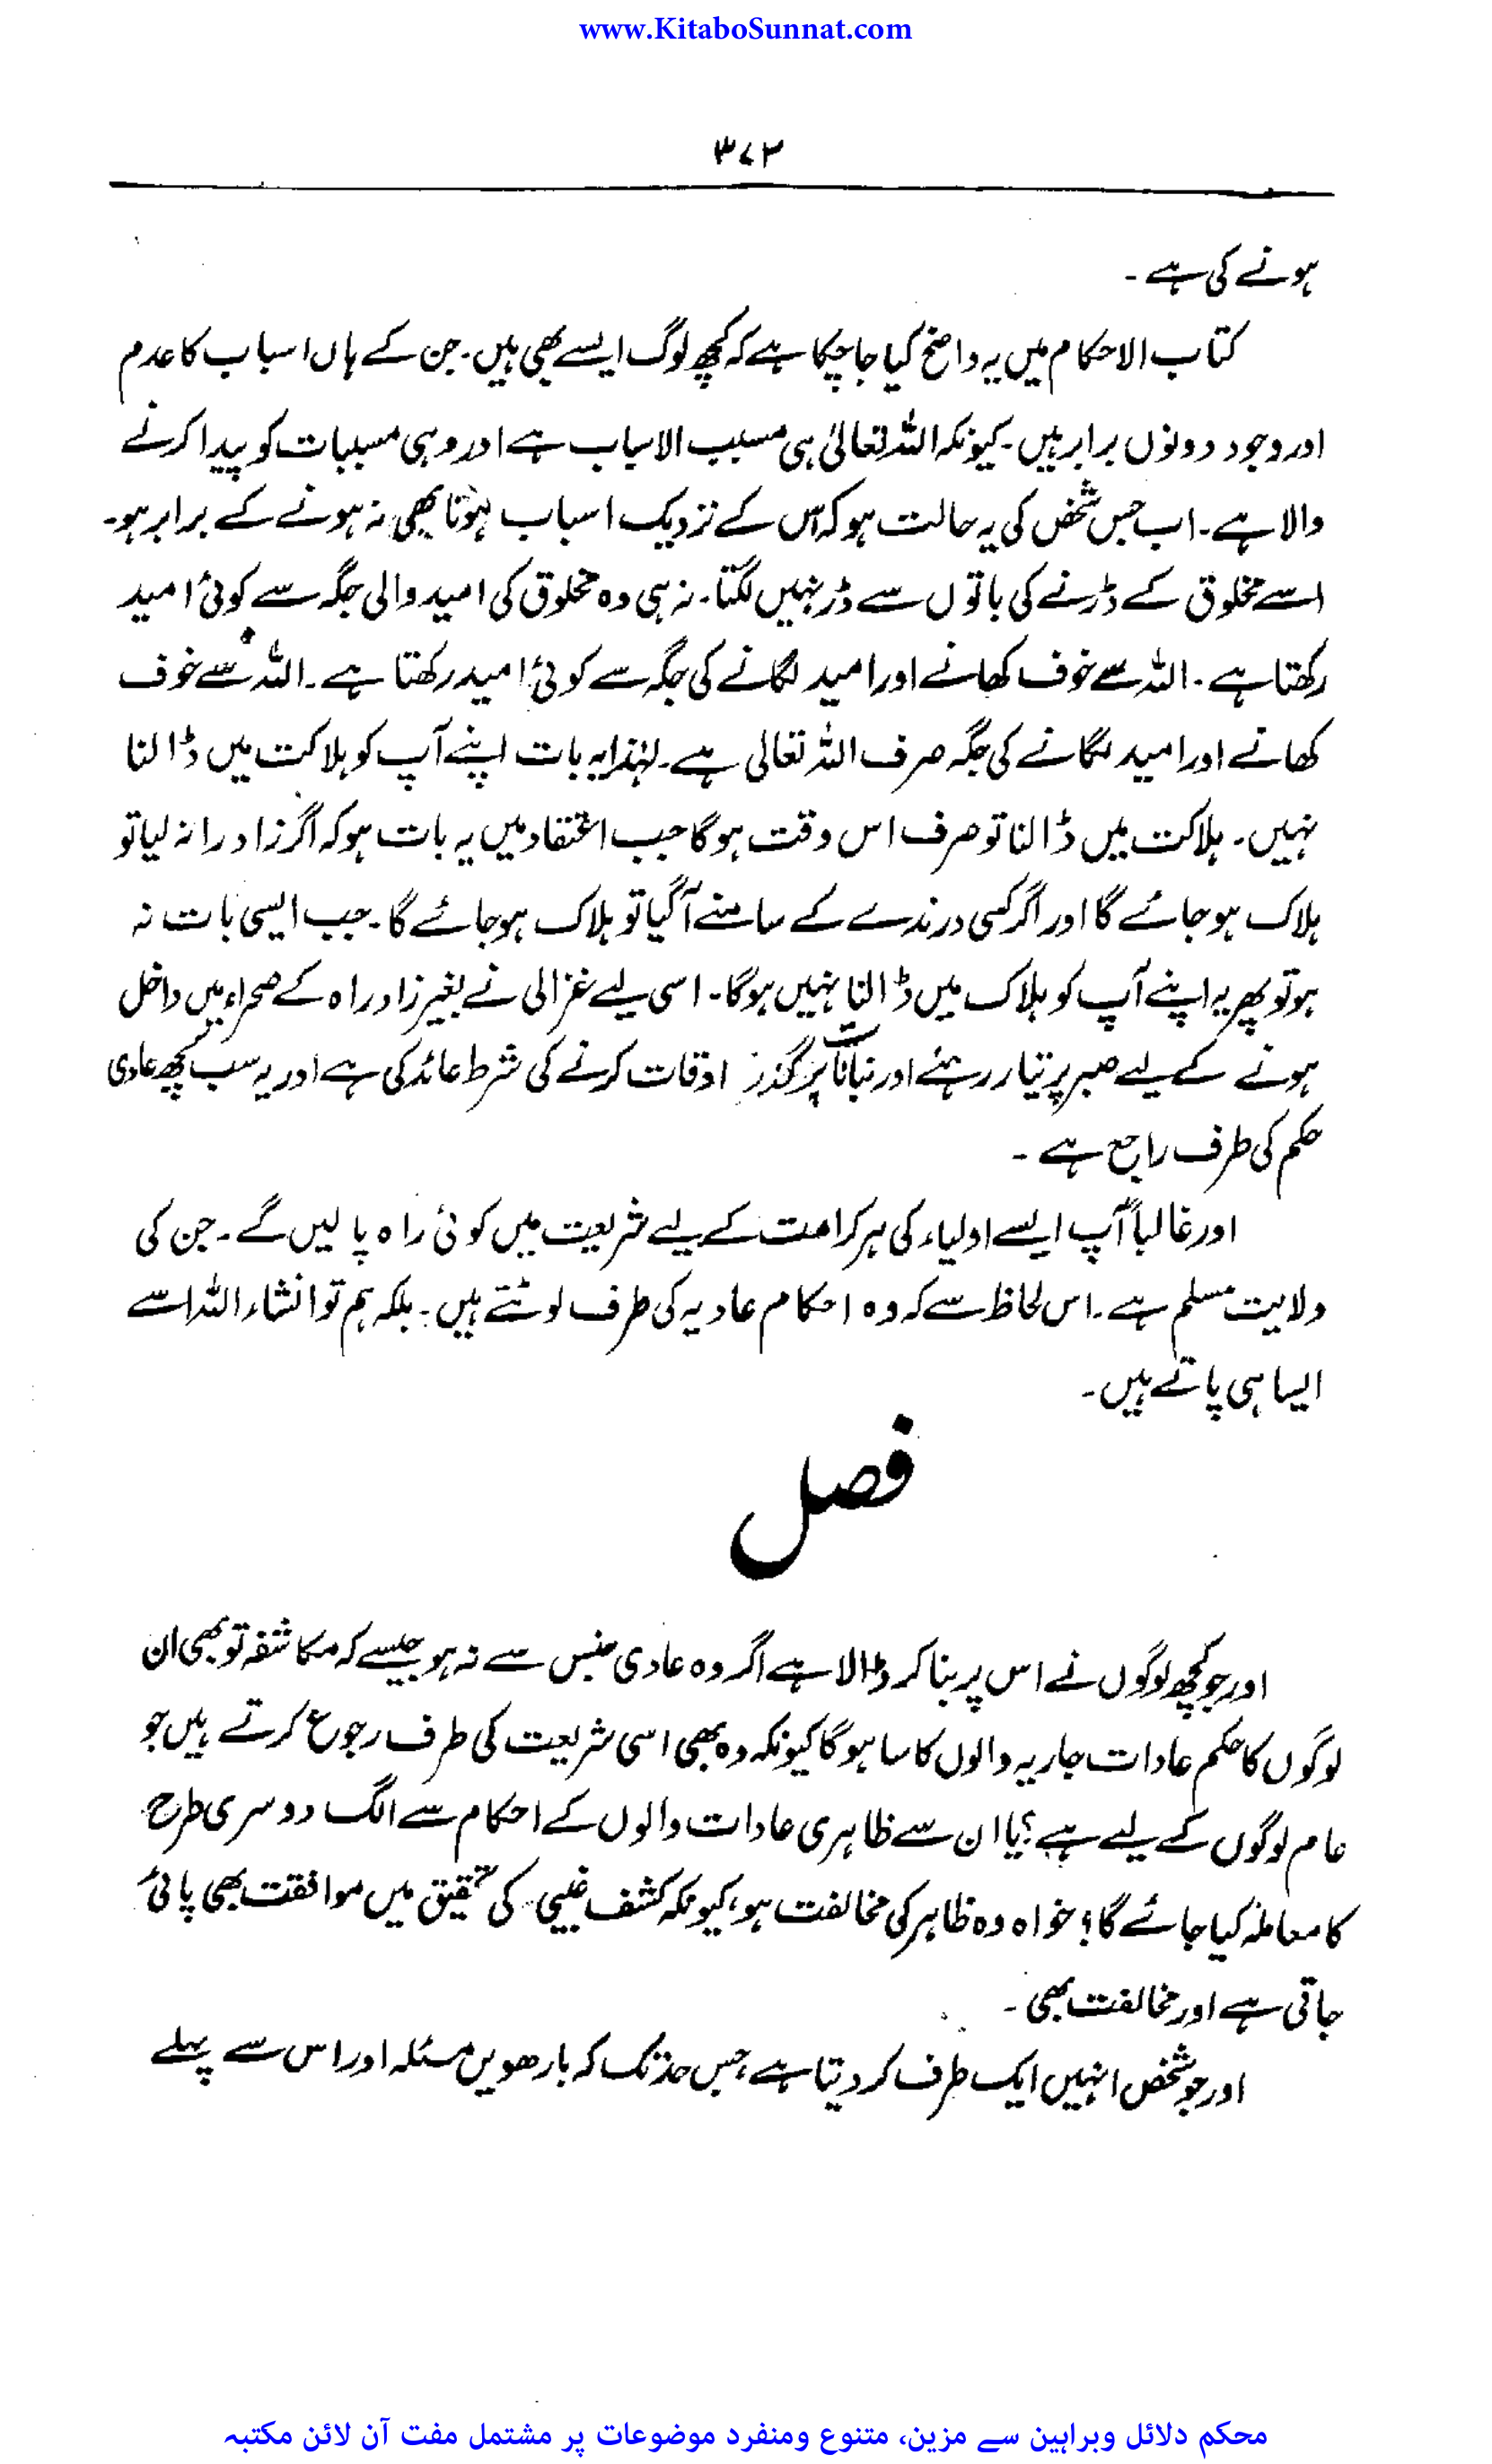 www.KitaboSunnat.com
۳۷۲
ہونے کی ہے۔
کتاب الاحکام میں یہ واضح کیا جاچکا ہے کہ کچھ لوگ ایسے بھی ہیں۔ جن کے ہاں اسباب کا عدم
اور وجود دونوں برابر ہیں۔ کیونکہ اللہ تعالیٰ ہی مسبب الاسباب ہے اور وہی مسببات کو پیدا کرنے
والا ہے۔ اب جس شخص کی یہ حالت ہو کہ اس کے نزدیک اسباب ہونا بھی نہ ہونے کے برابر ہو۔
اسے مخلوق کے ڈرنے کی باتوں سے ڈر نہیں لگتا۔ نہ ہی وہ مخلوق کی امید والی جگہ سے کوئی امید
رکھتا ہے۔ اللہ سے خوف کھانے اور امید لگانے کی جگہ سے کوئی امید رکھتا ہے۔ اللہ سے خوف
کھانے اور امید لگانے کی جگہ صرف اللہ تعالی ہے۔ لہٰذا یہ بات اپنے آپ کو ہلاکت میں ڈالنا
نہیں۔ ہلاکت میں ڈالنا تو صرف اس وقت ہوگا جب اعتقاد میں یہ بات ہو کہ اگر زاد راہ نہ لیا تو
ہلاک ہو جائے گا اور اگر کسی درندے کے سامنے آگیا تو ہلاک ہوجائے گا۔ جب ایسی بات نہ
ہو تو پھر یہ اپنے آپ کو ہلاک میں ڈالنا نہیں ہوگا۔ اسی لیے غزالی نے بغیر زاد راہ کے صحراء میں داخل
ہونے کے لیے صبر پر تیار رہنے اور نباتات پر گذر اوقات کرنے کی شرط عائد کی ہے اور یہ سب کچھ عادی
حکم کی طرف راجع ہے۔
اور غالباً آپ ایسے اولیاء کی ہر کرامت کے لیے شریعت میں کوئی راہ پا لیں گے۔ جن کی
ولایت مسلم ہے۔ اس لحاظ سے کہ وہ احکام عادیہ کی طرف لوٹتے ہیں۔ بلکہ ہم تو انشاء اللہ اسے
ایسا ہی پاتے ہیں۔
فصل
اور جو کچھ لوگوں نے اس پر بنا کر ڈالا ہے اگر وہ عادی جنس سے نہ ہو جیسے کہ مکاشفہ تو بھی ان
لوگوں کا حکم عادات جاریہ والوں کا سا ہوگا کیونکہ وہ بھی اسی شریعت کی طرف رجوع کرتے ہیں جو
عام لوگوں کے لیے ہے؟ یا ان سے ظاہری عادات والوں کے احکام سے الگ دوسری طرح
کا معاملہ کیا جائے گا؟ خواہ وہ ظاہر کی مخالفت ہو، کیونکہ کشف غیبی کی تحقیق میں موافقت بھی پائی
جاتی ہے اور مخالفت بھی۔
اور جو شخص انہیں ایک طرف کر دیتا ہے، جس حد تک کہ بارھویں مسئلہ اور اس سے پہلے
محکم دلائل وبراہین سے مزین، متنوع ومنفرد موضوعات پر مشتمل مفت آن لائن مکتبہ